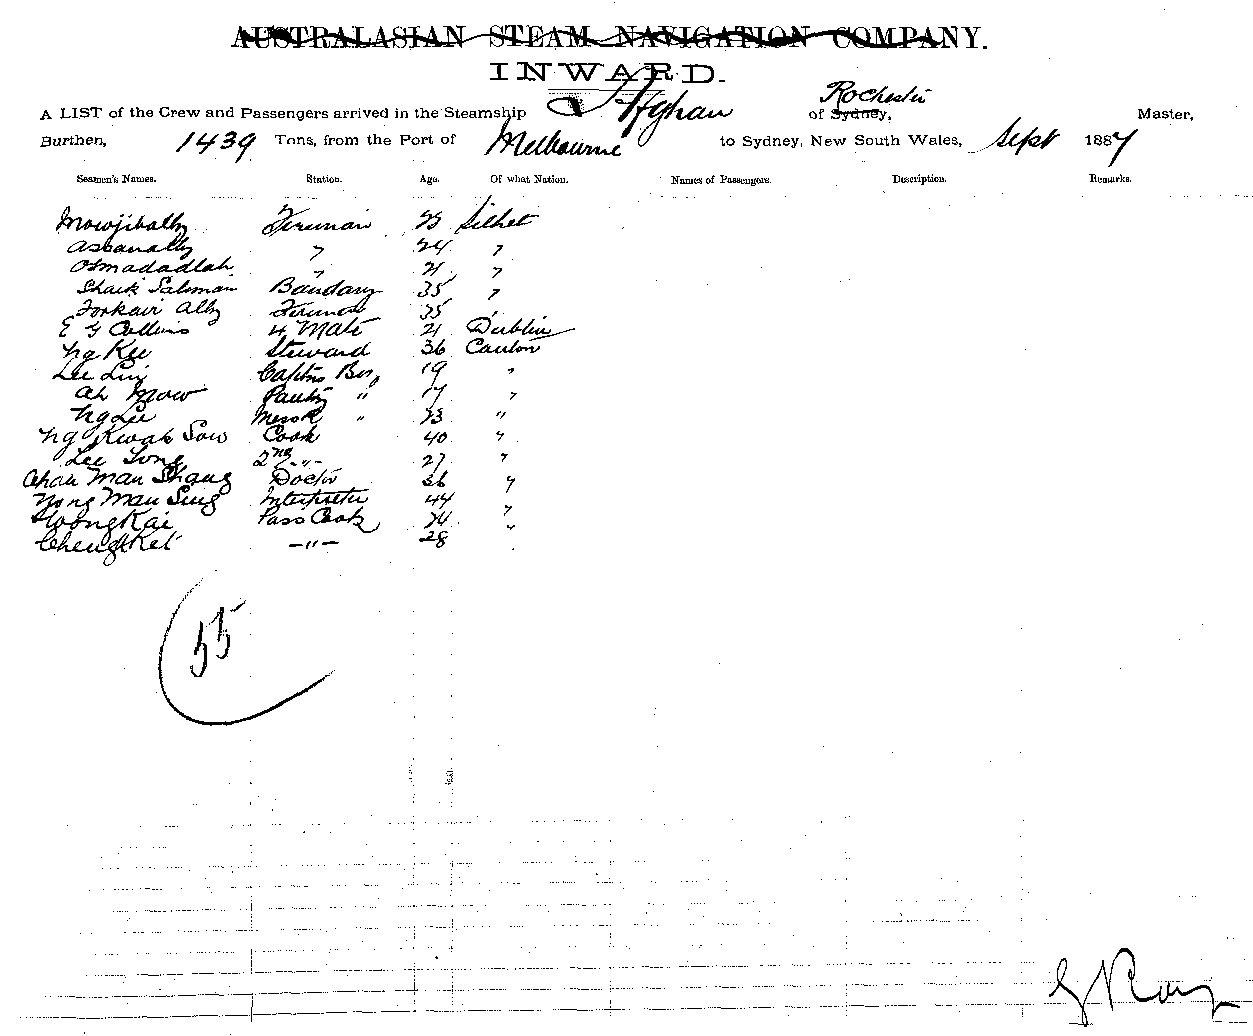 AUSTRALASIAN STEAM NAVIGATION COMPANY.
INWARD.
Rochester
A LIST of the Crew and Passengers arrived in the Steamship Afghan of Sydney, Master,
Burthen, 1439 Tons, from the Port of Melbourne to Sydney, New South Wales, Sept 1887
Seamen's Names. Station. Age. Of what Nation. Names of Passengers. Description. Remarks.
Mowjibally Fireman 23 Silhet
Assanally " 24 "
Osmadadlah " 21 "
Shaik Saliman Bandary 35 "
Forkair Ally Fireman 35 "
E G Collins 4 Mate 21 Dublin
Ng Kee Steward 36 Canton
Lee Captns Boy 19 "
Ah Mow Pantry " 17 "
Ng Lee Messr " 23 "
Ng Kwah Sow Cook 40 "
Lee 2nd -"- 27 "
Chan Man Shang Doctor 36 "
Yong Man Sing Interpreter 44 "
Wong Kai Pass Cook 24 "
Cheng Ket -"- 28
55